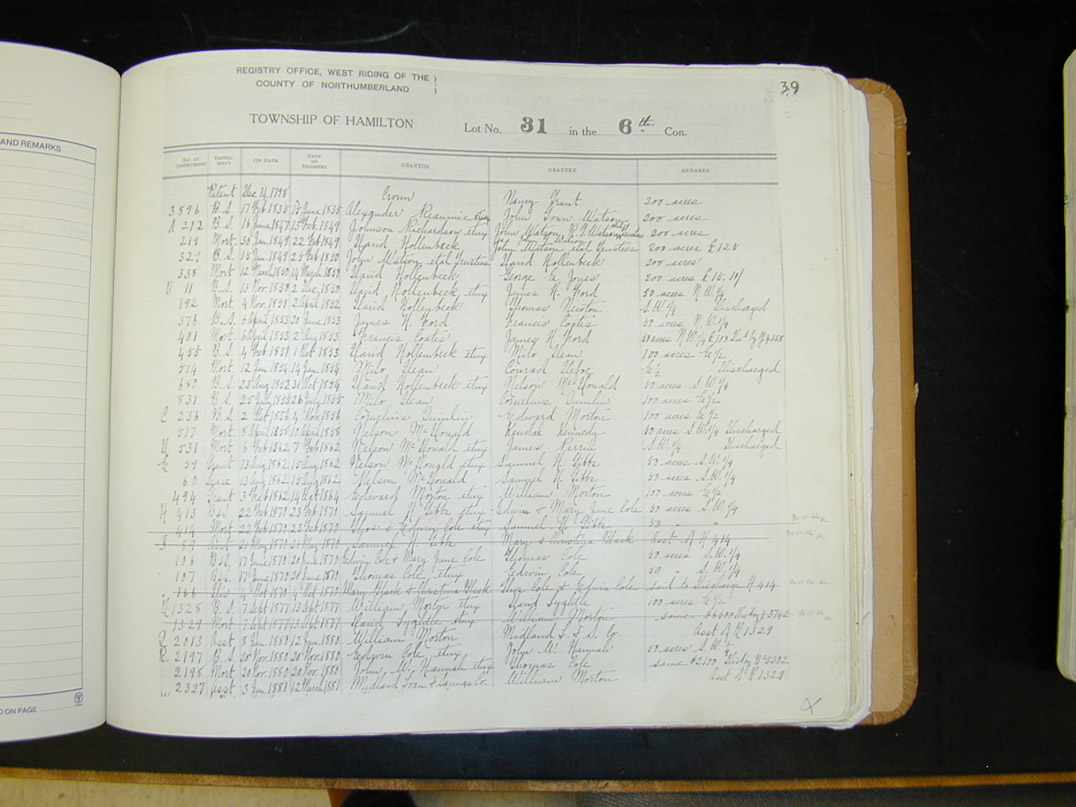 AND REMARKS
D ON PAGE
39
REGISTRY OFFICE, WEST RIDING OF THE
COUNTY OF NORTHUMBERLAND
TOWNSHIP OF HAMILTON Lot No. 31 in the 6th Con.
No. of Instrument Instrument Its Date Date of Registry GRANTOR GRANTEE REMARKS
Patent Dec 14, 1798 Crown Nancy Grant 200 acres
B.S. 17 Feb 1835 15 June 1835 Alexander etux John Watson 200 acres
A 212 B.S. 16 June 1847 Feb. 1849 Johnson Richardson etux John Watson 200 acres
219 Mort. 30 Jan 1849 22 Feb 1849 David Hollenbeck John Watson etal Trustees 200 acres £125
329 B.S. 15 Jan 1849 1850 John Watson etal Trustees David Hollenbeck 200 acres
338 Mort 12 March 1850 14 March 1850 David Hollenbeck George Jones 200 acres £15.10/
B 11 B.S. 13 Nov 1850 2 Dec. 1850 David Hollenbeck etux James H. Ford 50 acres N.W.1/4
192 Mort 4 Nov. 1851 2 April 1852 David Hollenbeck Thomas Newton S.W.1/4 Discharged
376 B.S. 6 April 1853 20 June 1853 James H. Ford Francis Coates 50 acres N.W.1/4
401 Mort. 6 April 1853 2 Aug 1853 Francis Coates James H. Ford 50 acres N.W.1/4 £100
455 B.S. 4 Feb 1851 1 Oct 1853 David Hollenbeck etux Milo Dean 100 acres E1/2
514 Mort 12 Jan 1854 14 Jan 1854 Milo Dean Conrad E1/2 Discharged
680 B.S. 23 Aug 1852 31 Oct 1854 David Hollenbeck etux Nelson McDonald 50 acres S.W.1/4
831 B.S. 25 July 1855 26 July 1855 Milo Dean Cornelius 100 acres E1/2
C 236 B.S. 2 1856 4 Nov. 1856 Cornelius Edward Morton 100 acres E1/2
517 Mort. 8 April 1858 17 April 1858 Nelson McDonald Kendal Kennedy 50 acres S.W.1/4 Discharged
D 531 Mort 6 Feb 1862 7 Feb 1862 Nelson McDonald etux James Perrin S.W.1/4 Discharged
E 59 Grant 13 Aug 1862 15 Aug 1862 Nelson McDonald etux Samuel H. Gibbs 50 acres S.W.1/4
60 Lease 13 Aug 1862 15 Aug 1862 Nelson McDonald Samuel H. Gibbs 50 acres S.W.1/4
494 Grant 3 Feb 1862 14 Sept 1864 Edward Morton etux William Morton 100 acres E1/2
H 413 B&S 22 Feb 1870 23 Feb 1871 Samuel H. Gibbs etux Edwin & Mary Jane Cole 50 acres S.W.1/4
414 Mort 22 Feb 1870 23 Feb 1870 Thos & Edwin Cole etux Samuel H. Gibbs 50 " "
I 59 Asst 21 May 1870 21 May 1870 Samuel H. Gibbs Mary & Christina Black Asst. of H 414
106 B&S 17 June 1870 20 June 1870 Edwin Cole & Mary Jane Cole Thomas Cole 50 acres S.W.1/4
107 B.S. 17 June 1870 20 June 1870 Thomas Cole etux Edwin Cole 50 " S.W.1/4
166 Dis 4 Oct 1870 4 Oct 1870 Mary Black & Christina Black Thos Cole & Edwin Cole Said to Discharge H 414
1328 B.S. 7 Sept 1877 13 Sept 1877 William Morton etux David Lyttle 100 acres E1/2
1329 Mort 7 Sept 1877 13 Sept 1877 David Lyttle etux William Morton same
2013 Asst 8 Jan 1880 12 Jan 1880 William Morton Midland L & S. Co. Asst of Q 1329
2197 B.S. 20 Nov 1880 20 Nov 1880 Edwin Cole etux John W. Hannah 50 acres S.W.1/4
2198 Mort 20 Nov. 1880 20 Nov. 1880 John W. Hannah etux Thomas Cole same $2100
2327 Asst 3 Jan 1881 12 March 1881 Midland Loan & Savings Co. William Morton Asst of Q 1329